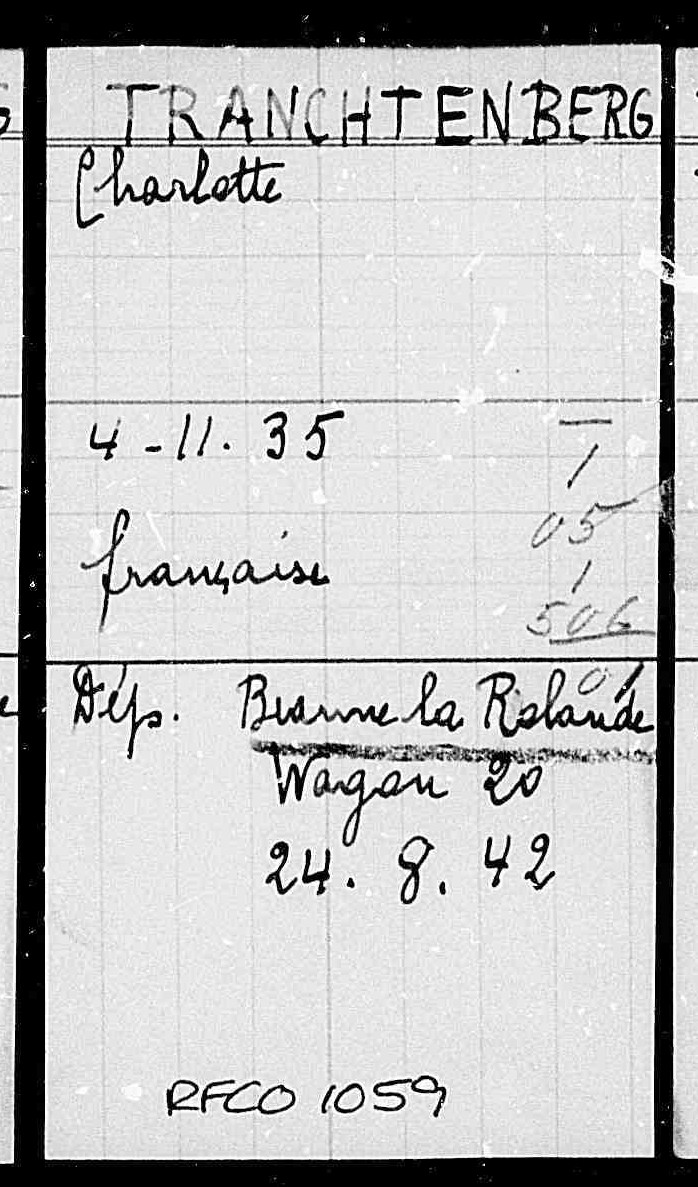 TRANCHTENBERG
Charlotte
4-11. 35
1
05
française
1
506
Dép. Beaune la Rolande
01
Wagon 20
24. 8. 42
RFCO 1059